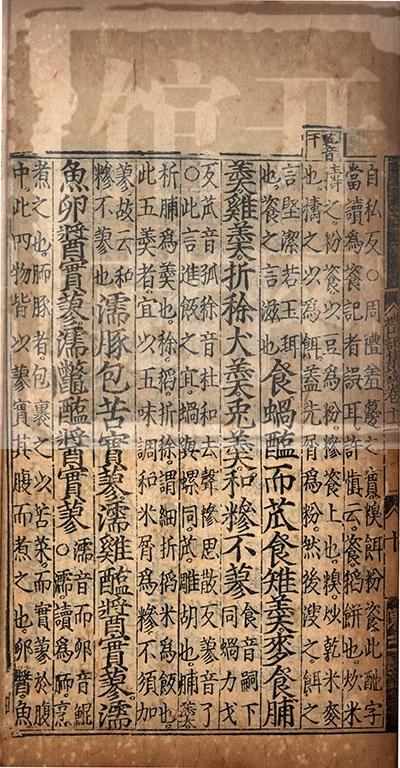 自私反○周禮羞籩之實糗餌粉餈此酏字
當讀爲餈記者誤耳許慎云餈稻餅也炊米
擣之粉餈以豆爲粉糝餈上也糗炒乾米麥
也擣之以爲餌蓋先屑爲粉然後溲之餌之
言堅潔若玉珥
也餈之言滋也
食蝸醢而苽食雉羹麥食脯
羹雞羹折稌犬羹兔羹和糝不蓼
食音嗣下
同蝸力戈
反苽音孤稌音杜和去聲糝思散反蓼音了
○此言進飯之宜蝸與螺同苽雕胡也脯羹
析脯爲羹也稻折稌謂細折稻米爲飯也
此五羹者宜以五味調和米屑爲糝不須加
蓼故云和
糝不蓼也
濡豚包苦實蓼濡雞醢醬實蓼濡
魚卵醬實蓼濡鱉醢醬實蓼
○濡音而卵音鯤
濡讀爲胹烹
煮之也胹豚者包裹之以苦菜而實蓼於腹
中此四物皆以蓼實其腹而煮之也卵醬魚